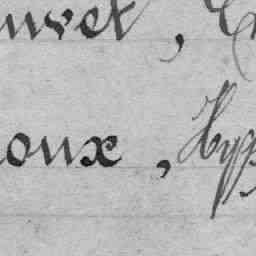 uvet, C
oux, Hyp